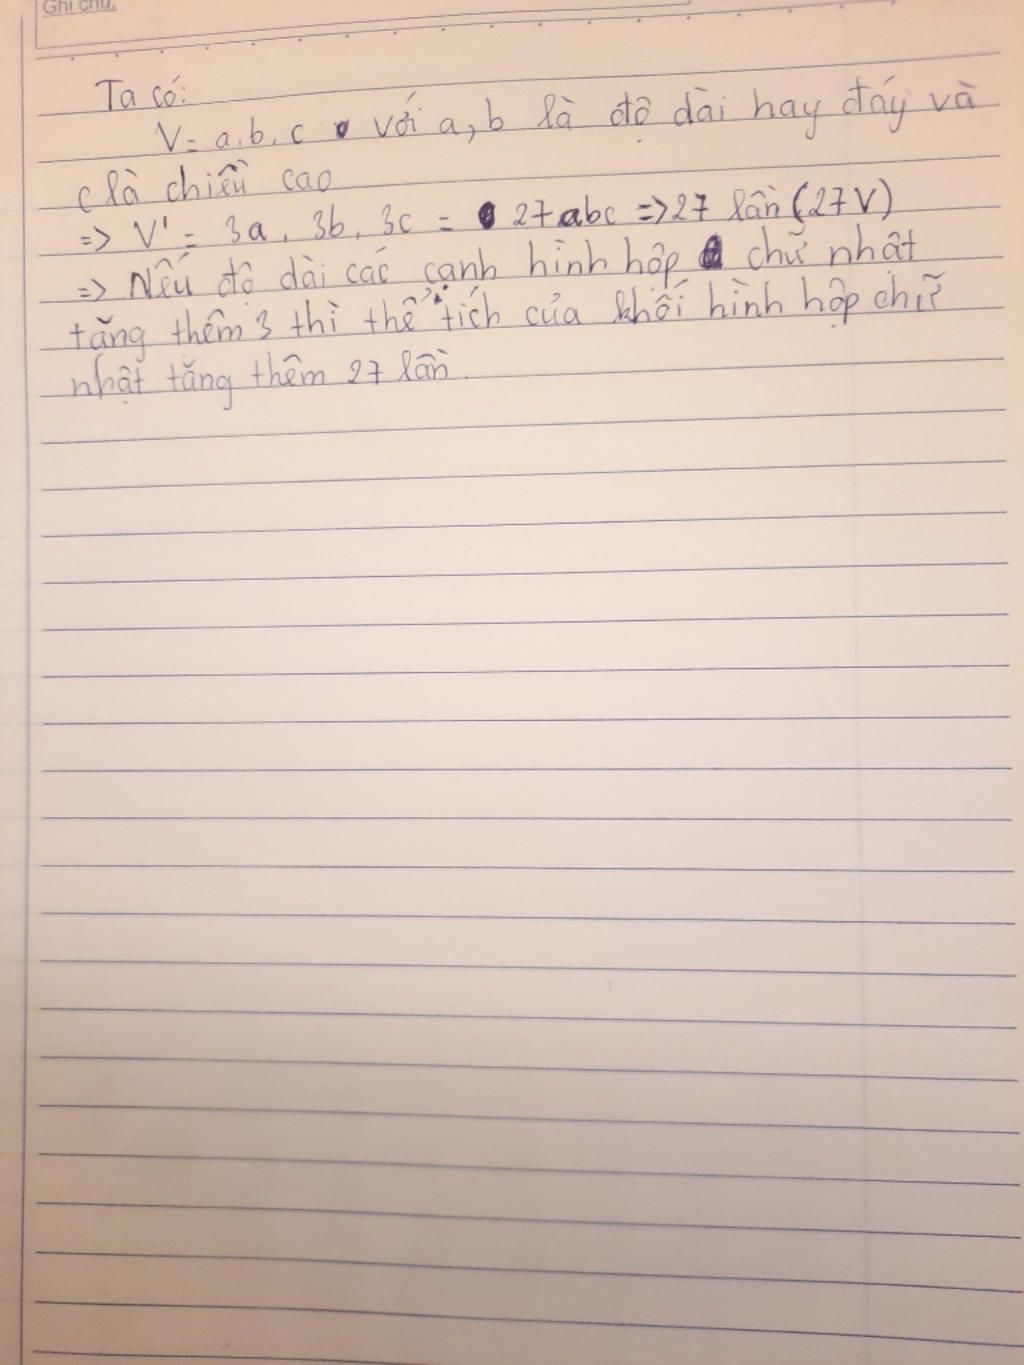 Ghi chú.
Ta có:
V = a.b.c với a, b là độ dài hay đáy và
c là chiều cao
=> V' = 3a . 3b . 3c = 27abc => 27 lần (27V)
=> Nếu độ dài các cạnh hình hộp chữ nhật
tăng thêm 3 thì thể tích của khối hình hộp chữ
nhật tăng thêm 27 lần.